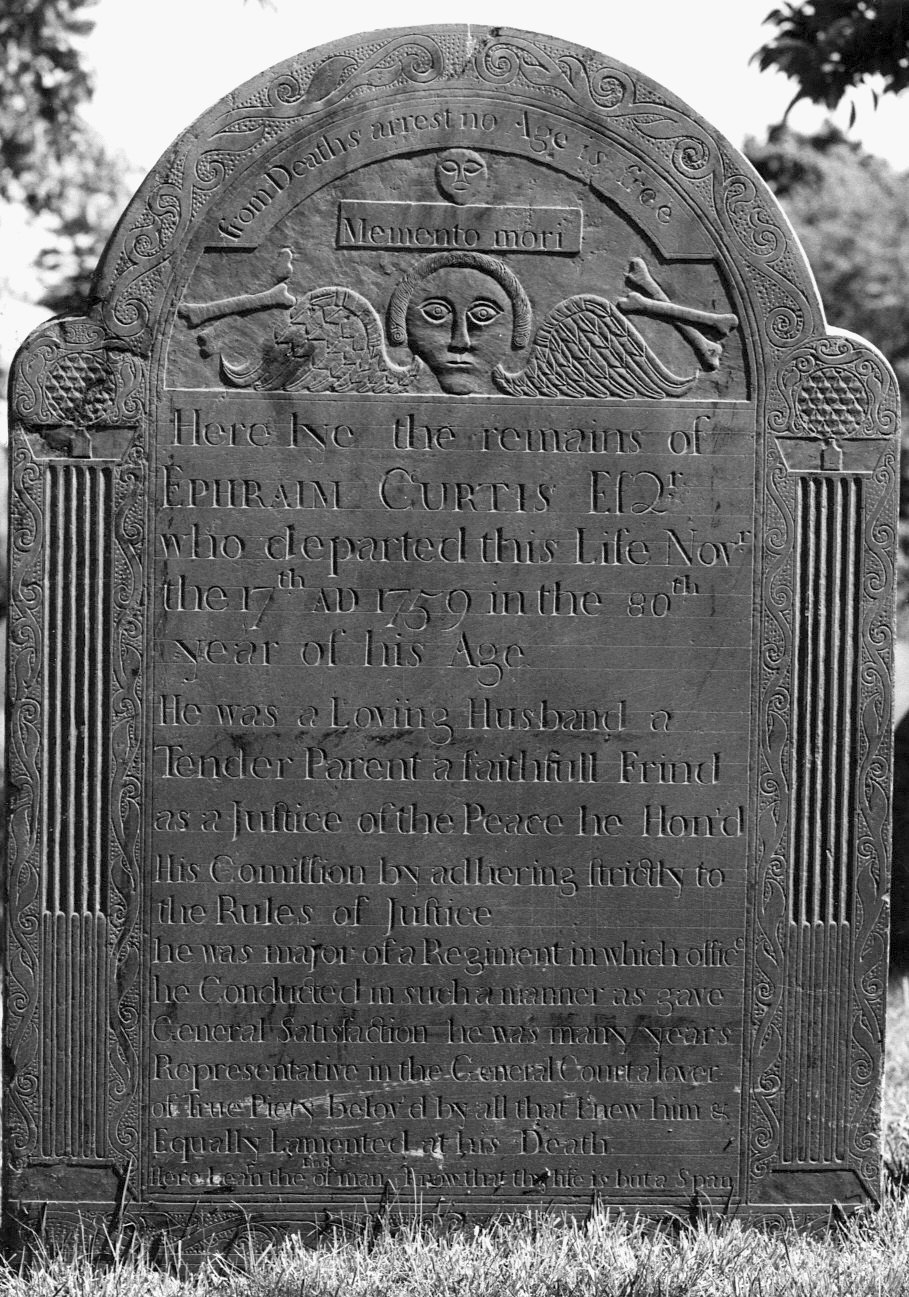 from Deaths arrest no Age is free
Memento mori
Here lye the remains of
EPHRAIM CURTIS Eſqr
who departed this Life Novr
the 17th AD 1759 in the 80th
year of his Age
He was a Loving Husband a
Tender Parent a faithfull Frind
as a Juſtice of the Peace he Hon'd
His Comiſſion by adhering ſtrictly to
the Rules of Juſtice
he was major of a Regiment in which offic
he Conducted in such a manner as gave
General Satisfaction he was many years
Representative in the General Court a lover
of True Piety belov'd by all that knew him &
Equally Lamented at his Death
Here the of man know that thy life is but a Span